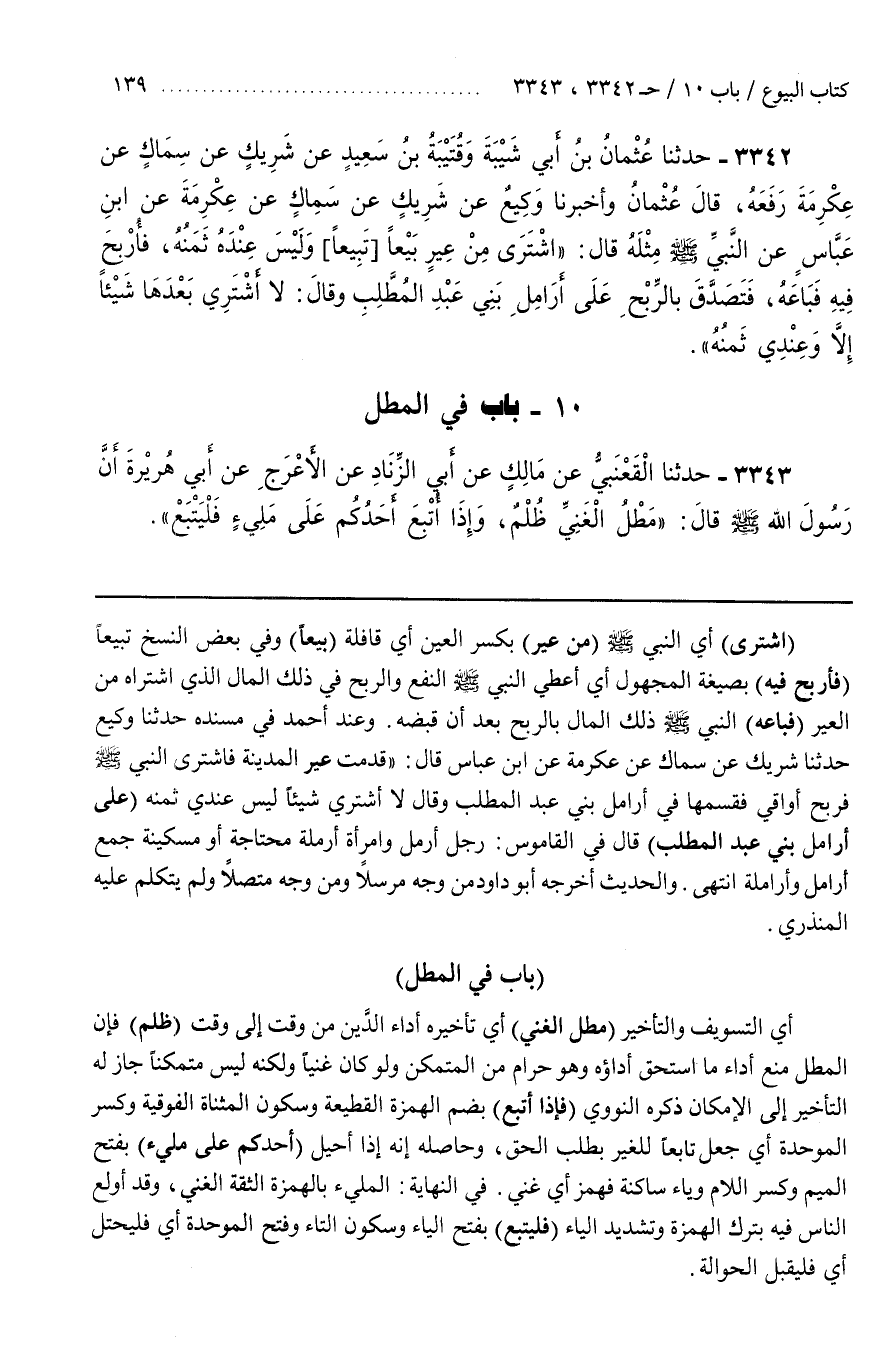 كتاب البيوع / باب ١٠ / حـ ٣٣٤٢ ، ٣٣٤٣ ........................................ ١٣٩
٣٣٤٢ ـ حدثنا عُثْمانُ بنُ أَبي شَيْبَةَ وَقُتَيْبَةُ بنُ سَعِيدٍ عن شَرِيكٍ عن سِمَاكٍ عن
عِكْرِمَةَ رَفَعَهُ، قالَ عُثْمانُ وأخبرنا وَكِيعٌ عن شَرِيكٍ عن سَمِاكٍ عن عِكْرِمَةَ عن ابنِ
عَبَّاسٍ عن النَّبيِّ ﷺ مِثْلَهُ قال: «اشْتَرَى مِنْ عِيرٍ بَيْعاً [تَبِيعاً] وَلَيْسَ عِنْدَهُ ثَمَنُهُ، فأُرْبِحَ
فِيهِ فَبَاعَهُ، فَتَصَدَّقَ بالرِّبْحِ عَلَى أَرَامِلِ بَنِي عَبْدِ المُطَّلِبِ وقالَ: لا أَشْتَرِي بَعْدَهَا شَيْئاً
إلَّا وَعِنْدِي ثَمنُهُ».
١٠ ـ باب في المطل
٣٣٤٣ ـ حدثنا الْقَعْنَبيُّ عن مَالِكٍ عن أَبي الزِّنَادِ عن الأَعْرَجِ عن أَبي هُرِيْرةَ أَنَّ
رَسُولَ الله ﷺ قالَ: «مَطْلُ الْغَنِيِّ ظُلْمٌ، وَإِذَا أُتْبِعَ أَحَدُكُم عَلَى مَلِيءٍ فَلْيَتْبَعْ».
(اشترى) أي النبي ﷺ (من عير) بكسر العين أي قافلة (بيعاً) وفي بعض النسخ تبيعاً
(فأربح فيه) بصيغة المجهول أي أعطي النبي ﷺ النفع والربح في ذلك المال الذي اشتراه من
العير (فباعه) النبي ﷺ ذلك المال بالربح بعد أن قبضه. وعند أحمد في مسنده حدثنا وكيع
حدثنا شريك عن سماك عن عكرمة عن ابن عباس قال: «قدمت عير المدينة فاشترى النبي ﷺ
فربح أواقي فقسمها في أرامل بني عبد المطلب وقال لا أشتري شيئاً ليس عندي ثمنه (على
أرامل بني عبد المطلب) قال في القاموس: رجل أرمل وامرأة أرملة محتاجة أو مسكينة جمع
أرامل وأراملة انتهى. والحديث أخرجه أبو داودمن وجه مرسلاً ومن وجه متصلاً ولم يتكلم عليه
المنذري.
(باب في المطل)
أي التسويف والتأخير (مطل الغني) أي تأخيره أداء الدَّين من وقت إلى وقت (ظلم) فإن
المطل منع أداء ما استحق أداؤه وهو حرام من المتمكن ولو كان غنياً ولكنه ليس متمكناً جاز له
التأخير إلى الإمكان ذكره النووي (فإذا أتبع) بضم الهمزة القطيعة وسكون المثناة الفوقية وكسر
الموحدة أي جعل تابعاً للغير بطلب الحق، وحاصله إنه إذا أحيل (أحدكم على مليء) بفتح
الميم وكسر اللام وياء ساكنة فهمز أي غني. في النهاية: المليء بالهمزة الثقة الغني، وقد أولع
الناس فيه بترك الهمزة وتشديد الياء (فليتبع) بفتح الياء وسكون التاء وفتح الموحدة أي فليحتل
أي فليقبل الحوالة.